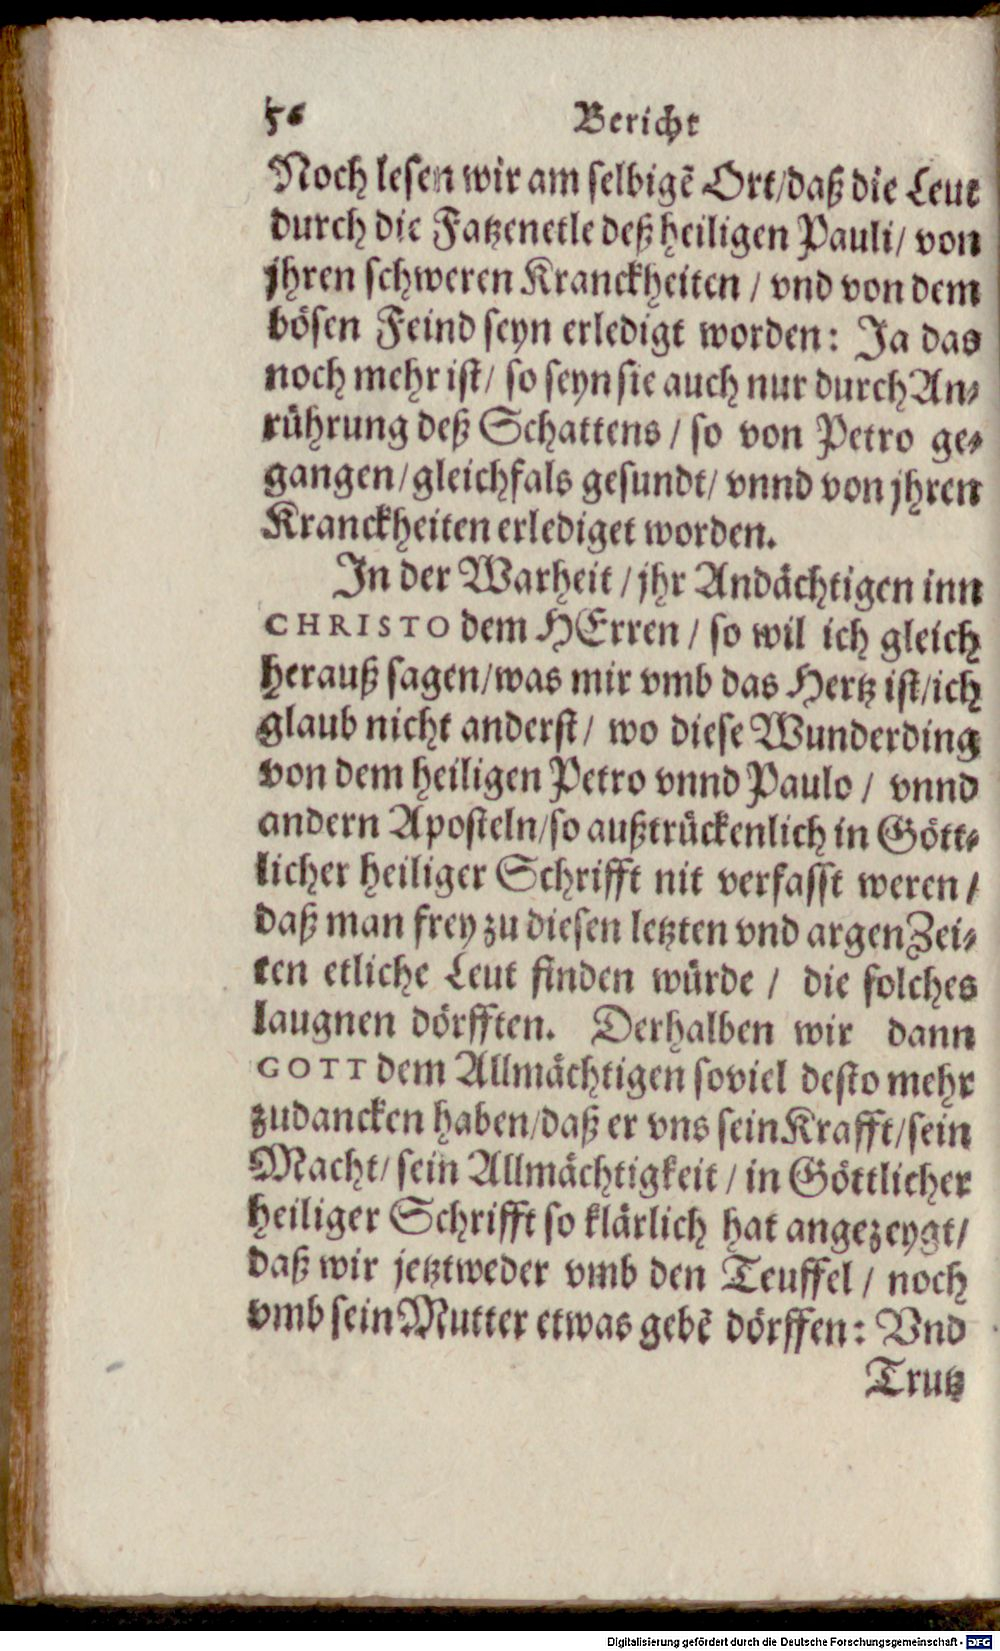 56 Bericht
Noch lesen wir am selbigẽ Ort/daß die Leut
durch die Fatzenetle deß heiligen Pauli/ von
jhren schweren Kranckheiten / vnd von dem
bösen Feind seyn erledigt worden: Ja das
noch mehr ist/ so seyn sie auch nur durch An-
rührung deß Schattens / so von Petro ge-
gangen/gleichfals gesundt/ vnnd von jhren
Kranckheiten erlediget worden.
In der Warheit / jhr Andächtigen inn
CHRISTO dem HErren / so wil ich gleich
herauß sagen/was mir vmb das Hertz ist/ich
glaub nicht anderst/ wo diese Wunderding
von dem heiligen Petro vnnd Paulo / vnnd
andern Aposteln/so außtrückenlich in Gött-
licher heiliger Schrifft nit verfasst weren /
daß man frey zu diesen letzten vnd argen Zei-
ten etliche Leut finden würde / die solches
laugnen dörfften. Derhalben wir dann
GOTT dem Allmächtigen soviel desto mehr
zudancken haben/daß er vns sein Krafft/sein
Macht/ sein Allmächtigkeit / in Göttlicher
heiliger Schrifft so klärlich hat angezeygt/
daß wir jetztweder vmb den Teuffel / noch
vmb sein Mutter etwas gebẽ dörffen: Vnd
Trutz
Digitalisierung gefördert durch die Deutsche Forschungsgemeinschaft - DFG